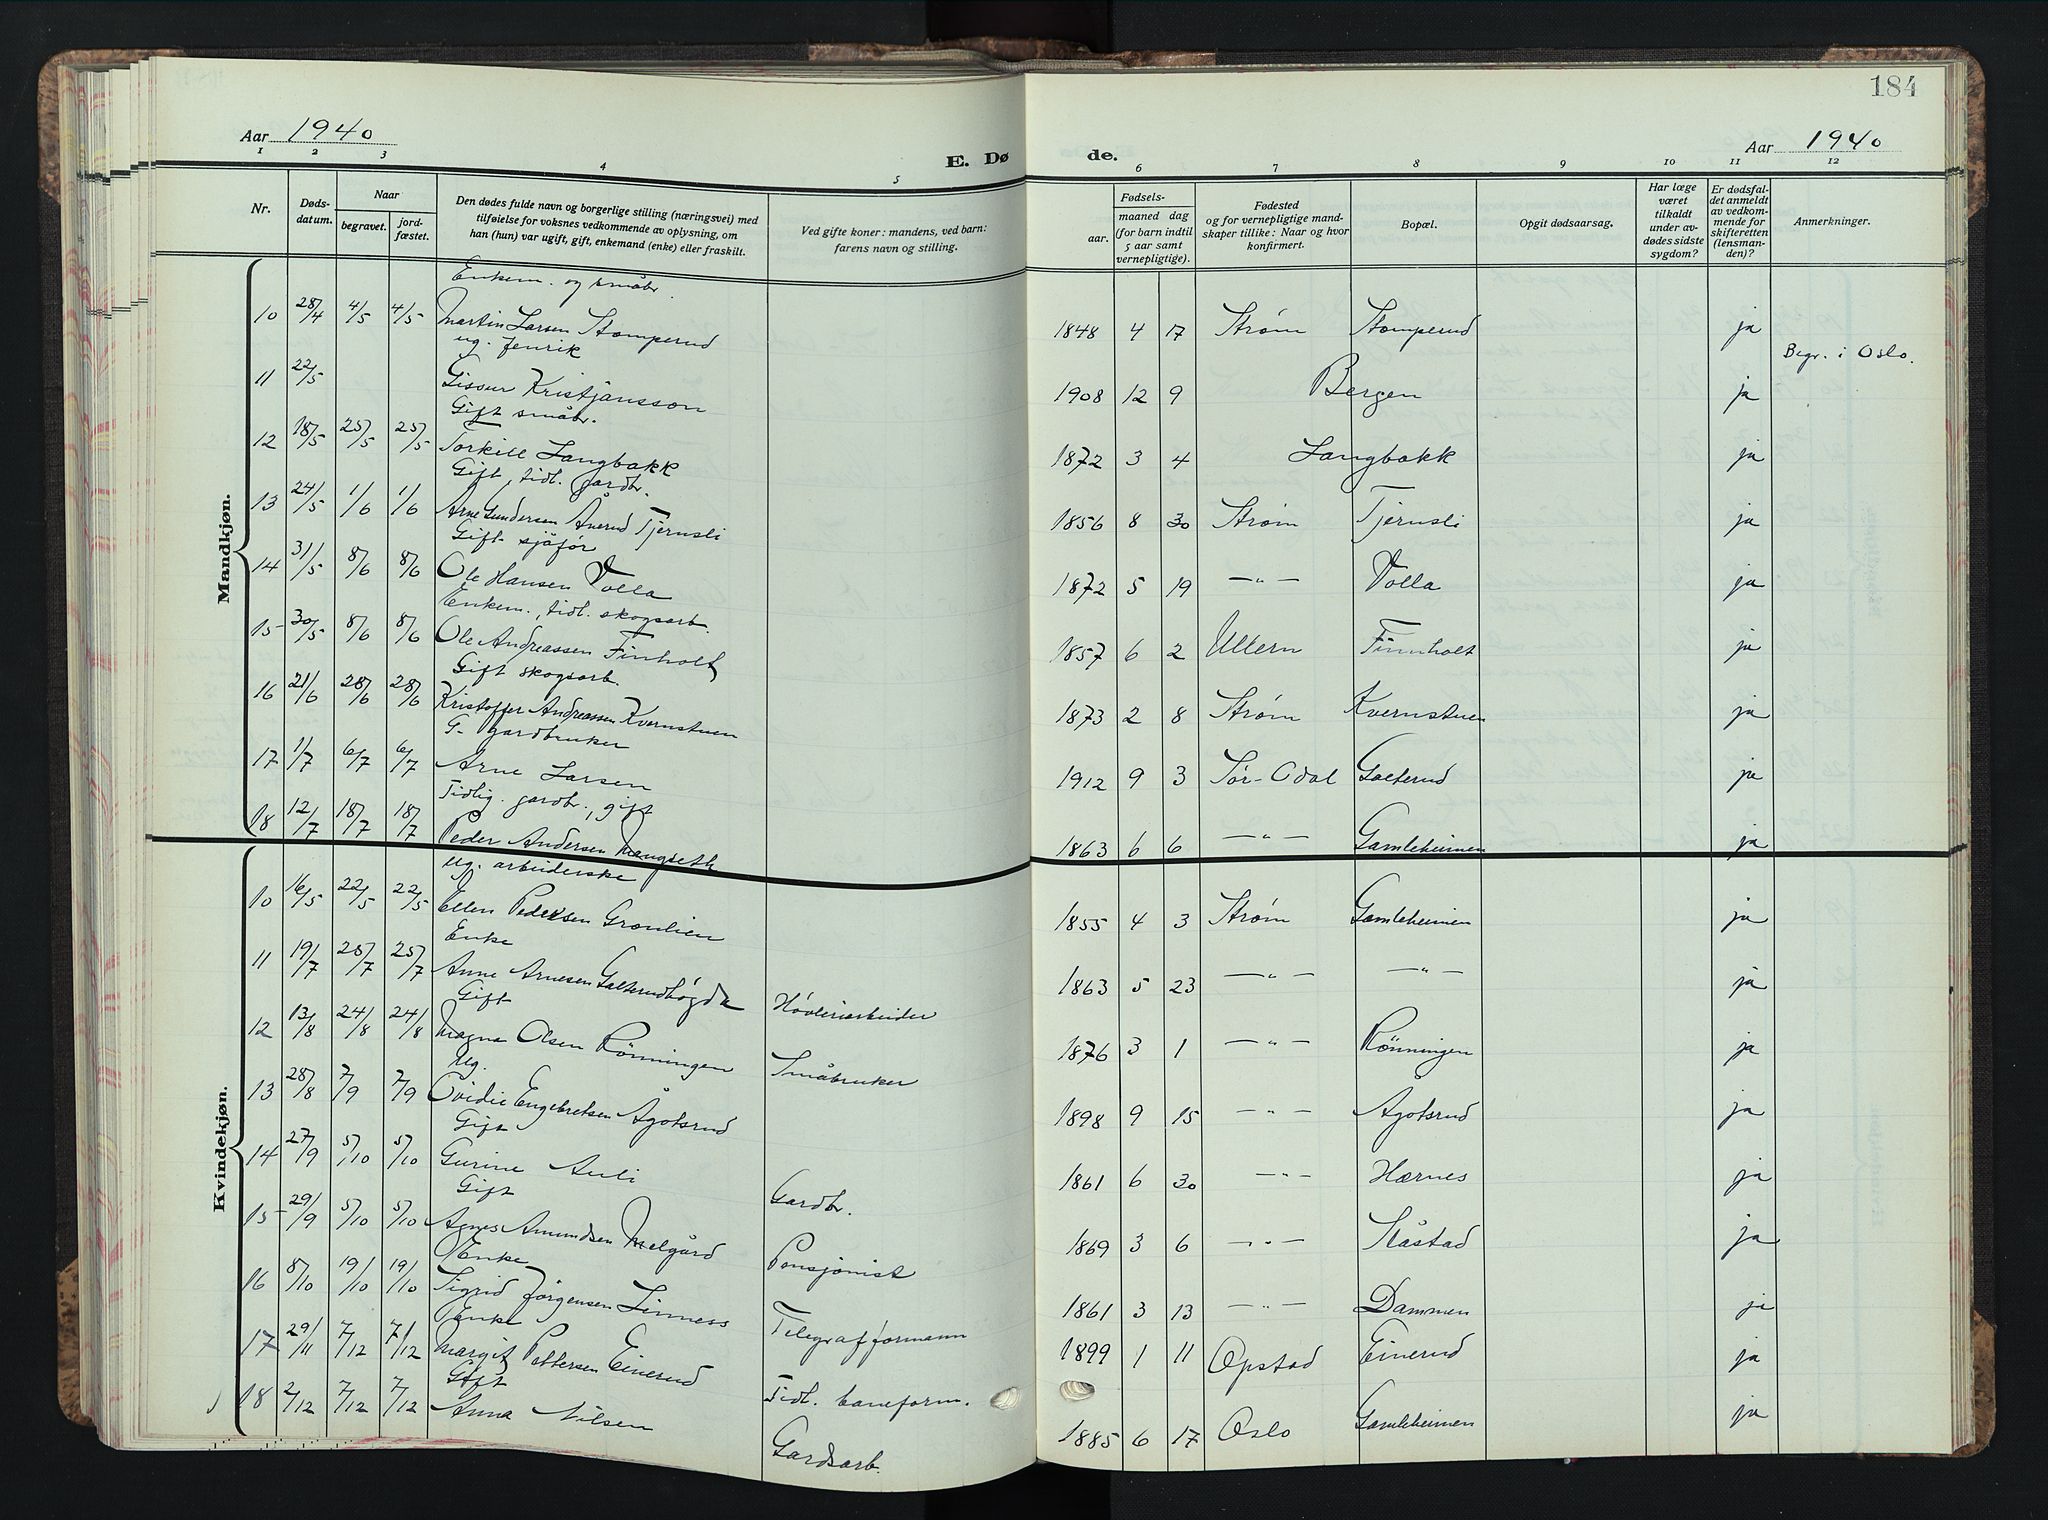 184
Aar 1940
E. Dø
de.
Aar 1940
1 2 3 4 5 6 7 8 9 10 11 12
Nr.
Døds-
datum.
Naar
begravet.
jord-
fæstet.
Den dødes fulde navn og borgerlige stilling (næringsvei) med
tilføielse for voksnes vedkommende av oplysning, om
han (hun) var ugift, gift, enkemand (enke) eller fraskilt.
Ved gifte koner: mandens, ved barn:
farens navn og stilling.
Fødsels-
aar.
maaned dag
(for barn indtil
5 aar samt
vernepligtige).
Fødested
og for vernepligtige mand-
skaper tillike: Naar og hvor
konfirmert.
Bopæl.
Opgit dødsaarsag.
Har læge
været
tilkaldt
under av-
dødes sidste
sygdom?
Er dødsfal-
det anmeldt
av vedkom-
mende for
skifteretten
(lensman-
den)?
Anmerkninger.
Mandkjøn.
Enkem. og småbr.
10 28/4 4/5 4/5 Martin Larsen Stomperud 1848 4 17 Strøm Stomperud ja
ug. fenrik
11 22/5 Gissur Kristjansson 1908 12 9 Bergen ja Begr. i Oslo.
Gift småbr.
12 18/5 25/5 25/5 Torkill Langbakk 1872 3 4 Langbakk ja
Gift, tidl. gardbr.
13 24/5 1/6 1/6 Arne Gundersen Årerud Tjernsli 1856 8 30 Strøm Tjernsli ja
Gift sjåfør
14 31/5 8/6 8/6 Ole Hansen Volla 1872 5 19 —"— Volla ja
Enkem., tidl. skogsarb.
15 30/5 8/6 8/6 Ole Andreassen Finholt 1857 6 2 Ullern Finnholt ja
Gift skogsarb.
16 21/6 28/6 28/6 Kristoffer Andreassen Kvernstuen 1873 2 8 Strøm Kvernstuen ja
G. gardbruker
17 1/7 6/7 6/7 Arne Larsen 1912 9 3 Sør-Odal Galterud ja
Tidlig. gardbr., gift
18 12/7 18/7 18/7 Peder Andersen Mangseth 1863 6 6 —"— Gamleheimen ja
Kvindekjøn.
ug. arbeiderske
10 16/5 22/5 22/5 Ellen Pedersen Gronlien 1855 4 3 Strøm Gamleheimen ja
Enke
11 19/7 25/7 25/7 Anne Arnesen Galterudhøgda 1863 5 23 —"— —"— ja
Gift Høvleriarbeider
12 13/8 24/8 24/8 Magna Olsen Rönningen 1876 3 1 —"— Rönningen ja
Ug. Småbruker
13 28/8 7/9 7/9 Ovidie Engebretsen Ågotsrud 1898 9 15 —"— Ågotsrud ja
Gift
14 27/9 5/10 5/10 Gurine Auli 1861 6 30 —"— Hærnes ja
Gift Gardbr.
15 29/9 5/10 5/10 Agnes Amundsen Melgård 1869 3 6 —"— Skåstad ja
Enke Pensjonist
16 8/10 19/10 19/10 Sigrid Jørgensen Linness 1861 3 13 —"— Dammen ja
Enke Telegrafformann
17 29/11 7/12 7/12 Margit Pettersen Einerud 1899 1 11 Opstad Einerud ja
Gift Tidl. baneform.
18 2/12 7/12 7/12 Anna Nilsen 1885 6 17 Oslo Gamleheimen ja
Gardsarb.